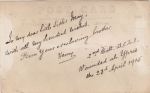 To my dear little Sister Mary,
with all my hundred wishes.
From your ever loving brother
Harry.
2nd Batt. D.C.L.I.
Wounded at Ypres
the 23rd April 1915